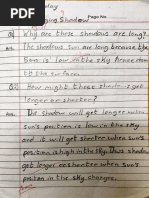 day
ging Shadow
Page No.
Q1 Why are these shadows are long?
Ans The shadows sun are long because the
sun is low in the sky hence down
to the surface.
Q2 How might these shadows get
longer or shorter?
Ans The shadow will get longer when
sun's position is low in the sky
and it will get shorter when sun's
position is high in the sky. thus shadows
get longer or shorter when sun's
position in the sky changes.